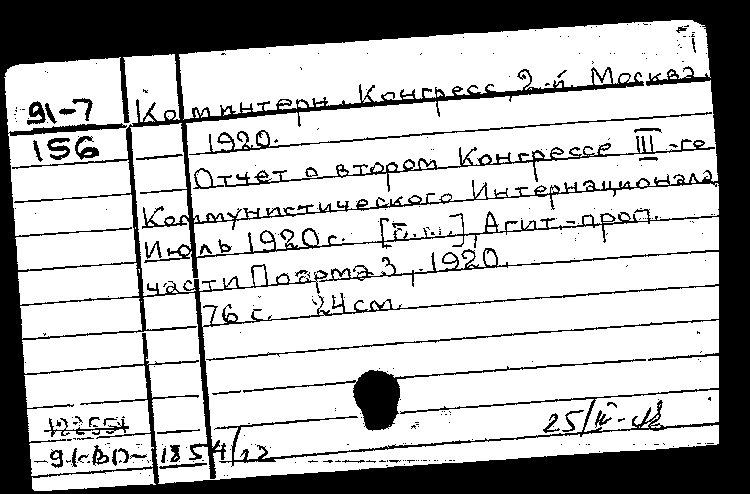 91-7 Коминтерн. Конгресс, 2-й. Москва.
156 1920.
Отчет о втором Конгрессе III-го
Коммунистического Интернационала
Июль 1920 г. [б.м.], Агит.-проп.
части Поарма 3, 1920.
76 с. 24 см.
122551
25/IV-48
91-ВО-1854/12